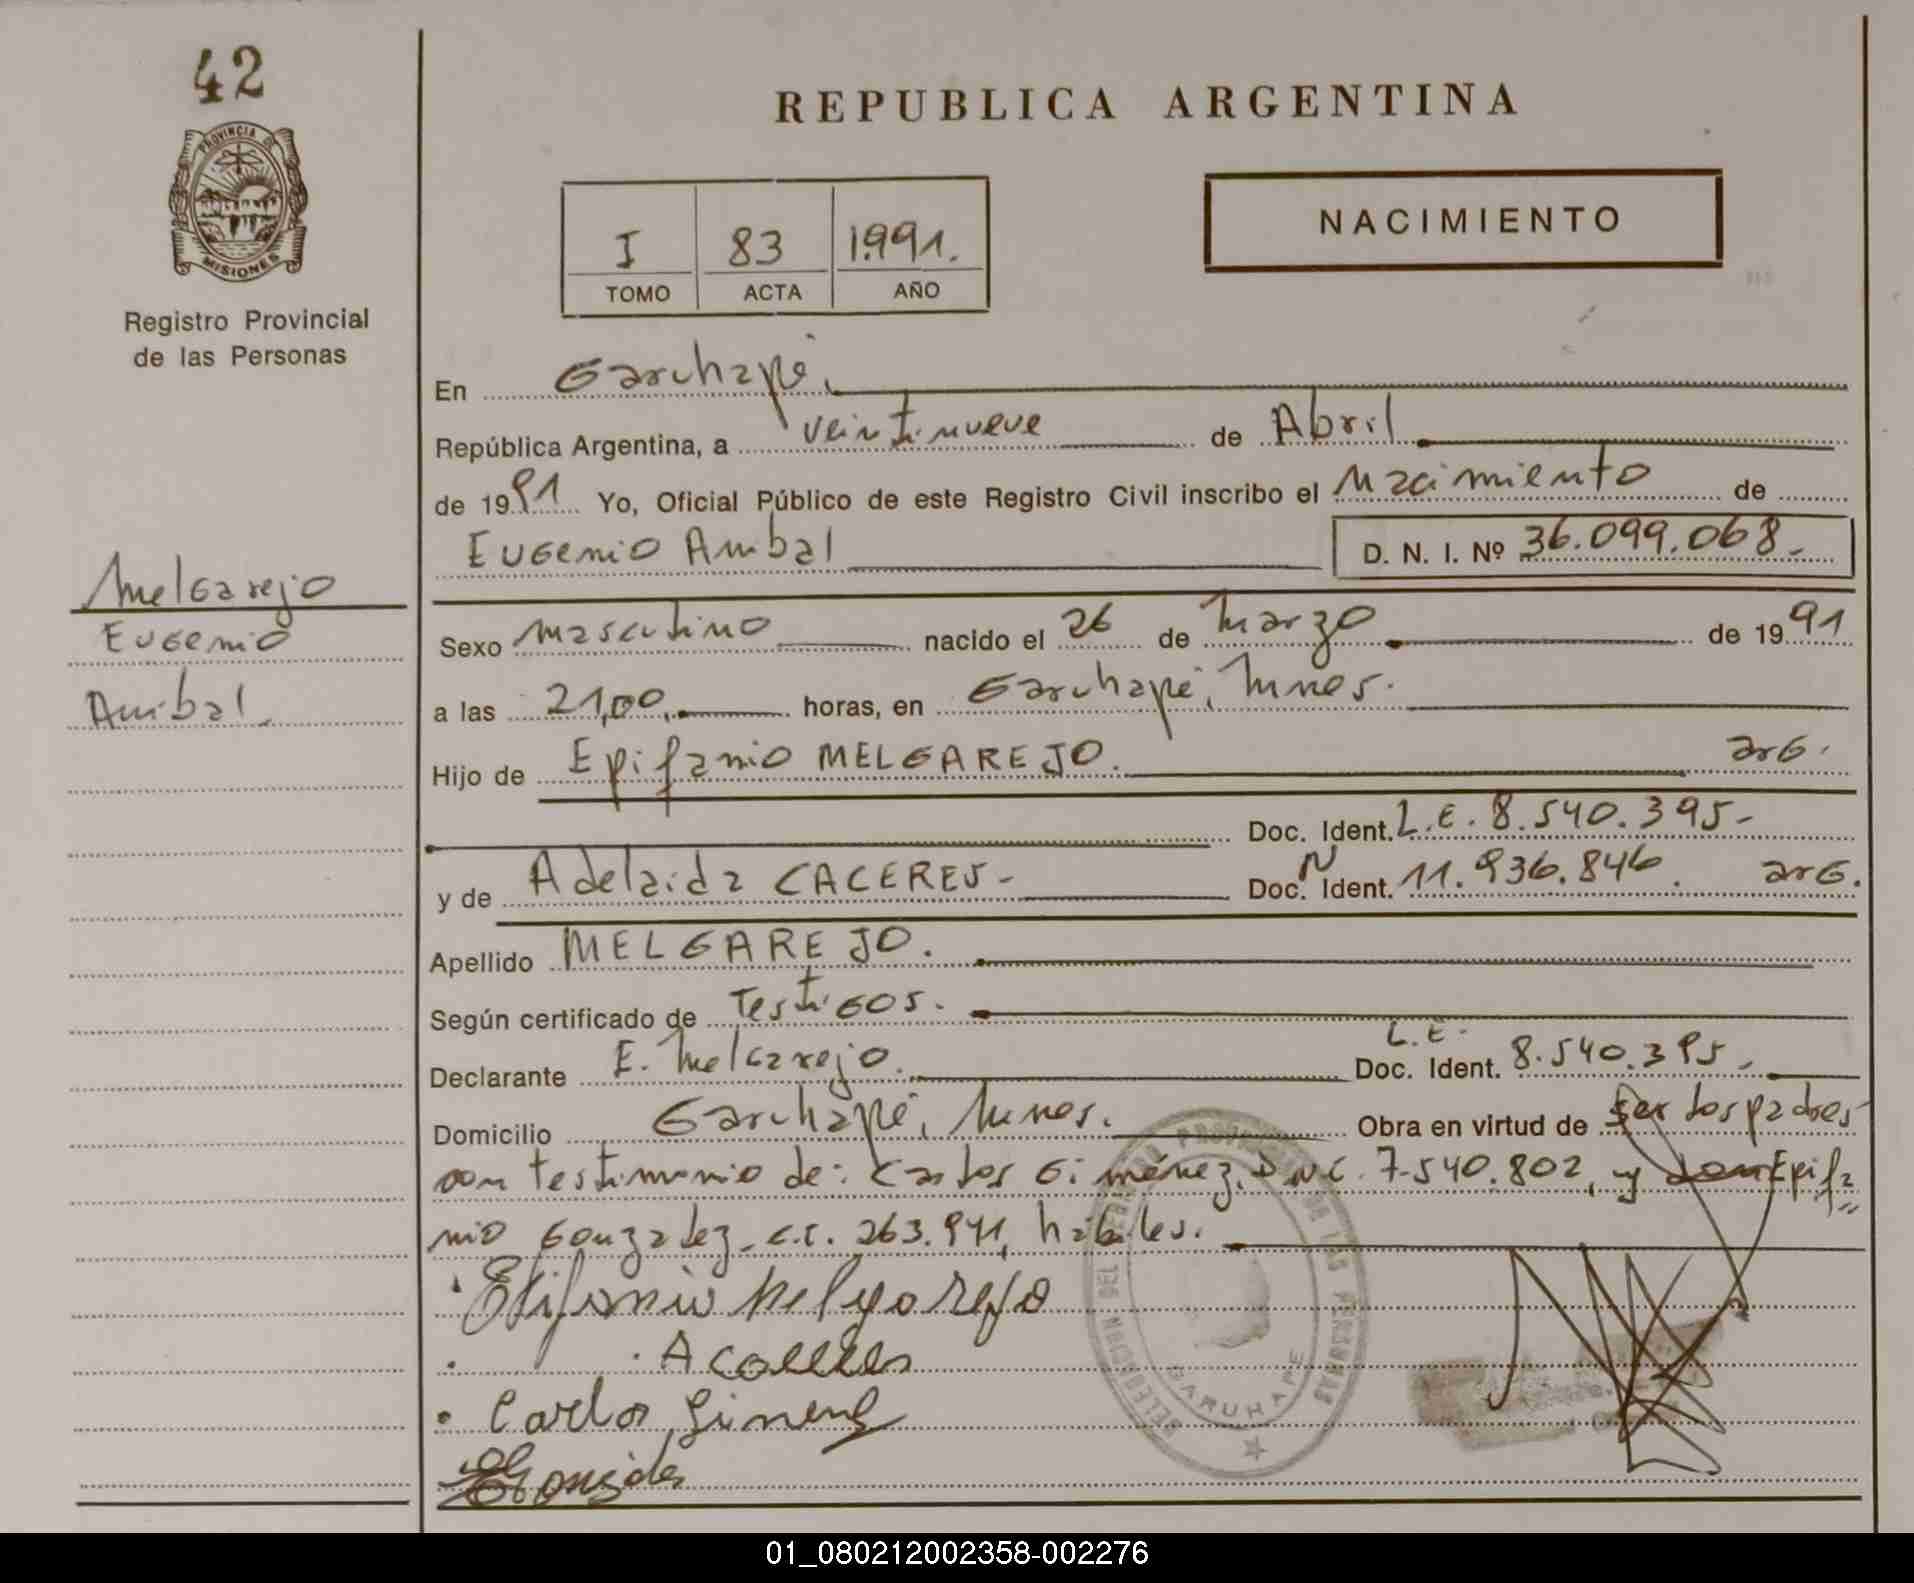 42
PROVINCIA DE
MISIONES
Registro Provincial
de las Personas
Melgarejo
Eugenio
Anibal.
REPUBLICA ARGENTINA
I 83 1.991.
TOMO ACTA AÑO
NACIMIENTO
En Garuhapé,
República Argentina, a veintinueve de Abril
de 1991 Yo, Oficial Público de este Registro Civil inscribo el Nacimiento de
Eugenio Anibal D. N. I. Nº 36.099.068.-
Sexo masculino nacido el 26 de Marzo de 1991
a las 21,00, horas, en Garuhapé, Mnes.
Hijo de Epifanio MELGAREJO. arg.
Doc. Ident. L.E. 8.540.395-
y de Adelaida CACERES- Doc. N Ident. 11.936.846. arg.
Apellido MELGAREJO.
Según certificado de Testigos.
Declarante E. Melgarejo. Doc. Ident. L.E. 8.540.395.
Domicilio Garuhapé, Mnes. Obra en virtud de ser los padres
con testimonio de: Carlos Giménez, D N I. 7.540.802, y Epifa
nio Gonzalez, c.i. 263.941, hábiles.
Epifanio Melgarejo
A Caceres
Carlos Gimenez
Gonzales
DELEGACION DEL REGISTRO PROVINCIAL DE LAS PERSONAS
GARUHAPE
01_080212002358-002276